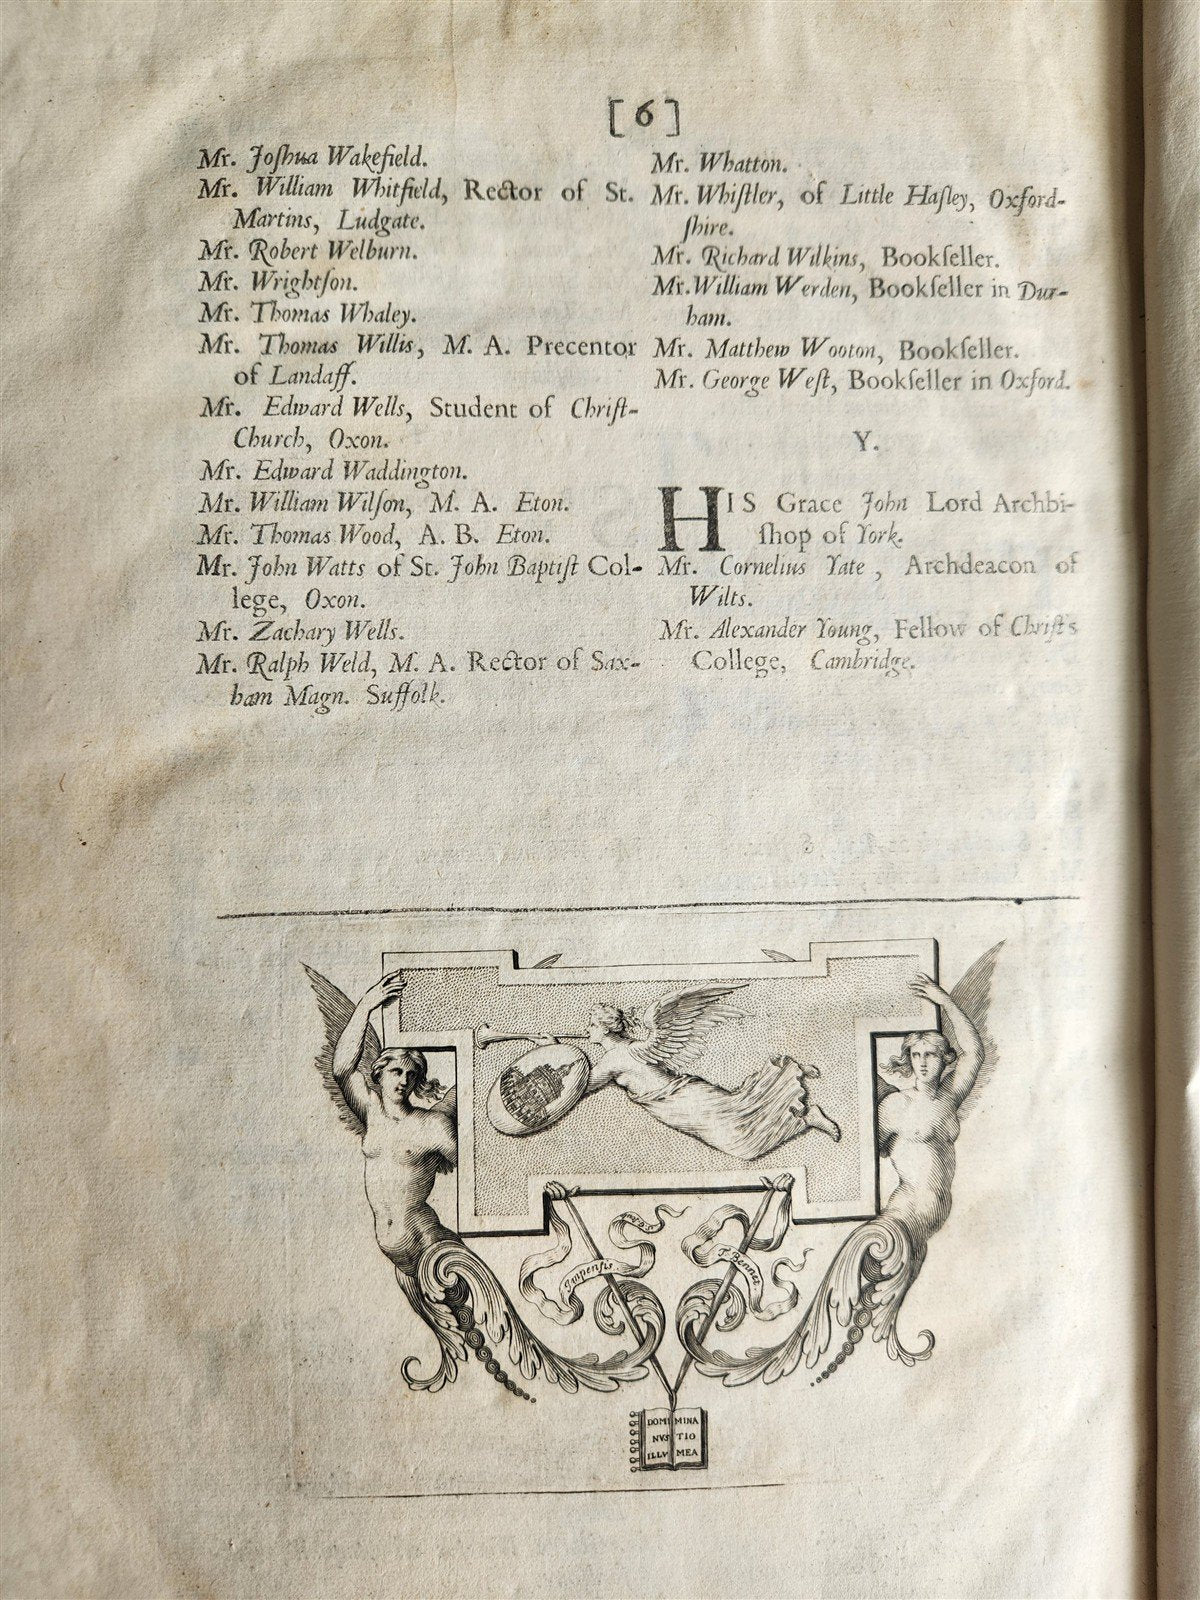 [ 6 ]
Mr. Joſhua Wakefield.
Mr. William Whitfield, Rector of St.
Martins, Ludgate.
Mr. Robert Welburn.
Mr. Wrightſon.
Mr. Thomas Whaley.
Mr. Thomas Willis, M. A. Precentor
of Landaff.
Mr. Edward Wells, Student of Chriſt-
Church, Oxon.
Mr. Edward Waddington.
Mr. William Wilſon, M. A. Eton.
Mr. Thomas Wood, A. B. Eton.
Mr. John Watts of St. John Baptiſt Col-
lege, Oxon.
Mr. Zachary Wells.
Mr. Ralph Weld, M. A. Rector of Sax-
ham Magn. Suffolk.
Mr. Whatton.
Mr. Whiſtler, of Little Haſley, Oxford-
ſhire.
Mr. Richard Wilkins, Bookſeller.
Mr. William Werden, Bookſeller in Dur-
ham.
Mr. Matthew Wooton, Bookſeller.
Mr. George Weſt, Bookſeller in Oxford.
Y.
HIS Grace John Lord Archbi-
ſhop of York.
Mr. Cornelius Yate, Archdeacon of
Wilts.
Mr. Alexander Young, Fellow of Chriſt's
College, Cambridge.
Impenſis
T. Bennet
DOMI MINA
NVS TIO
ILLV MEA